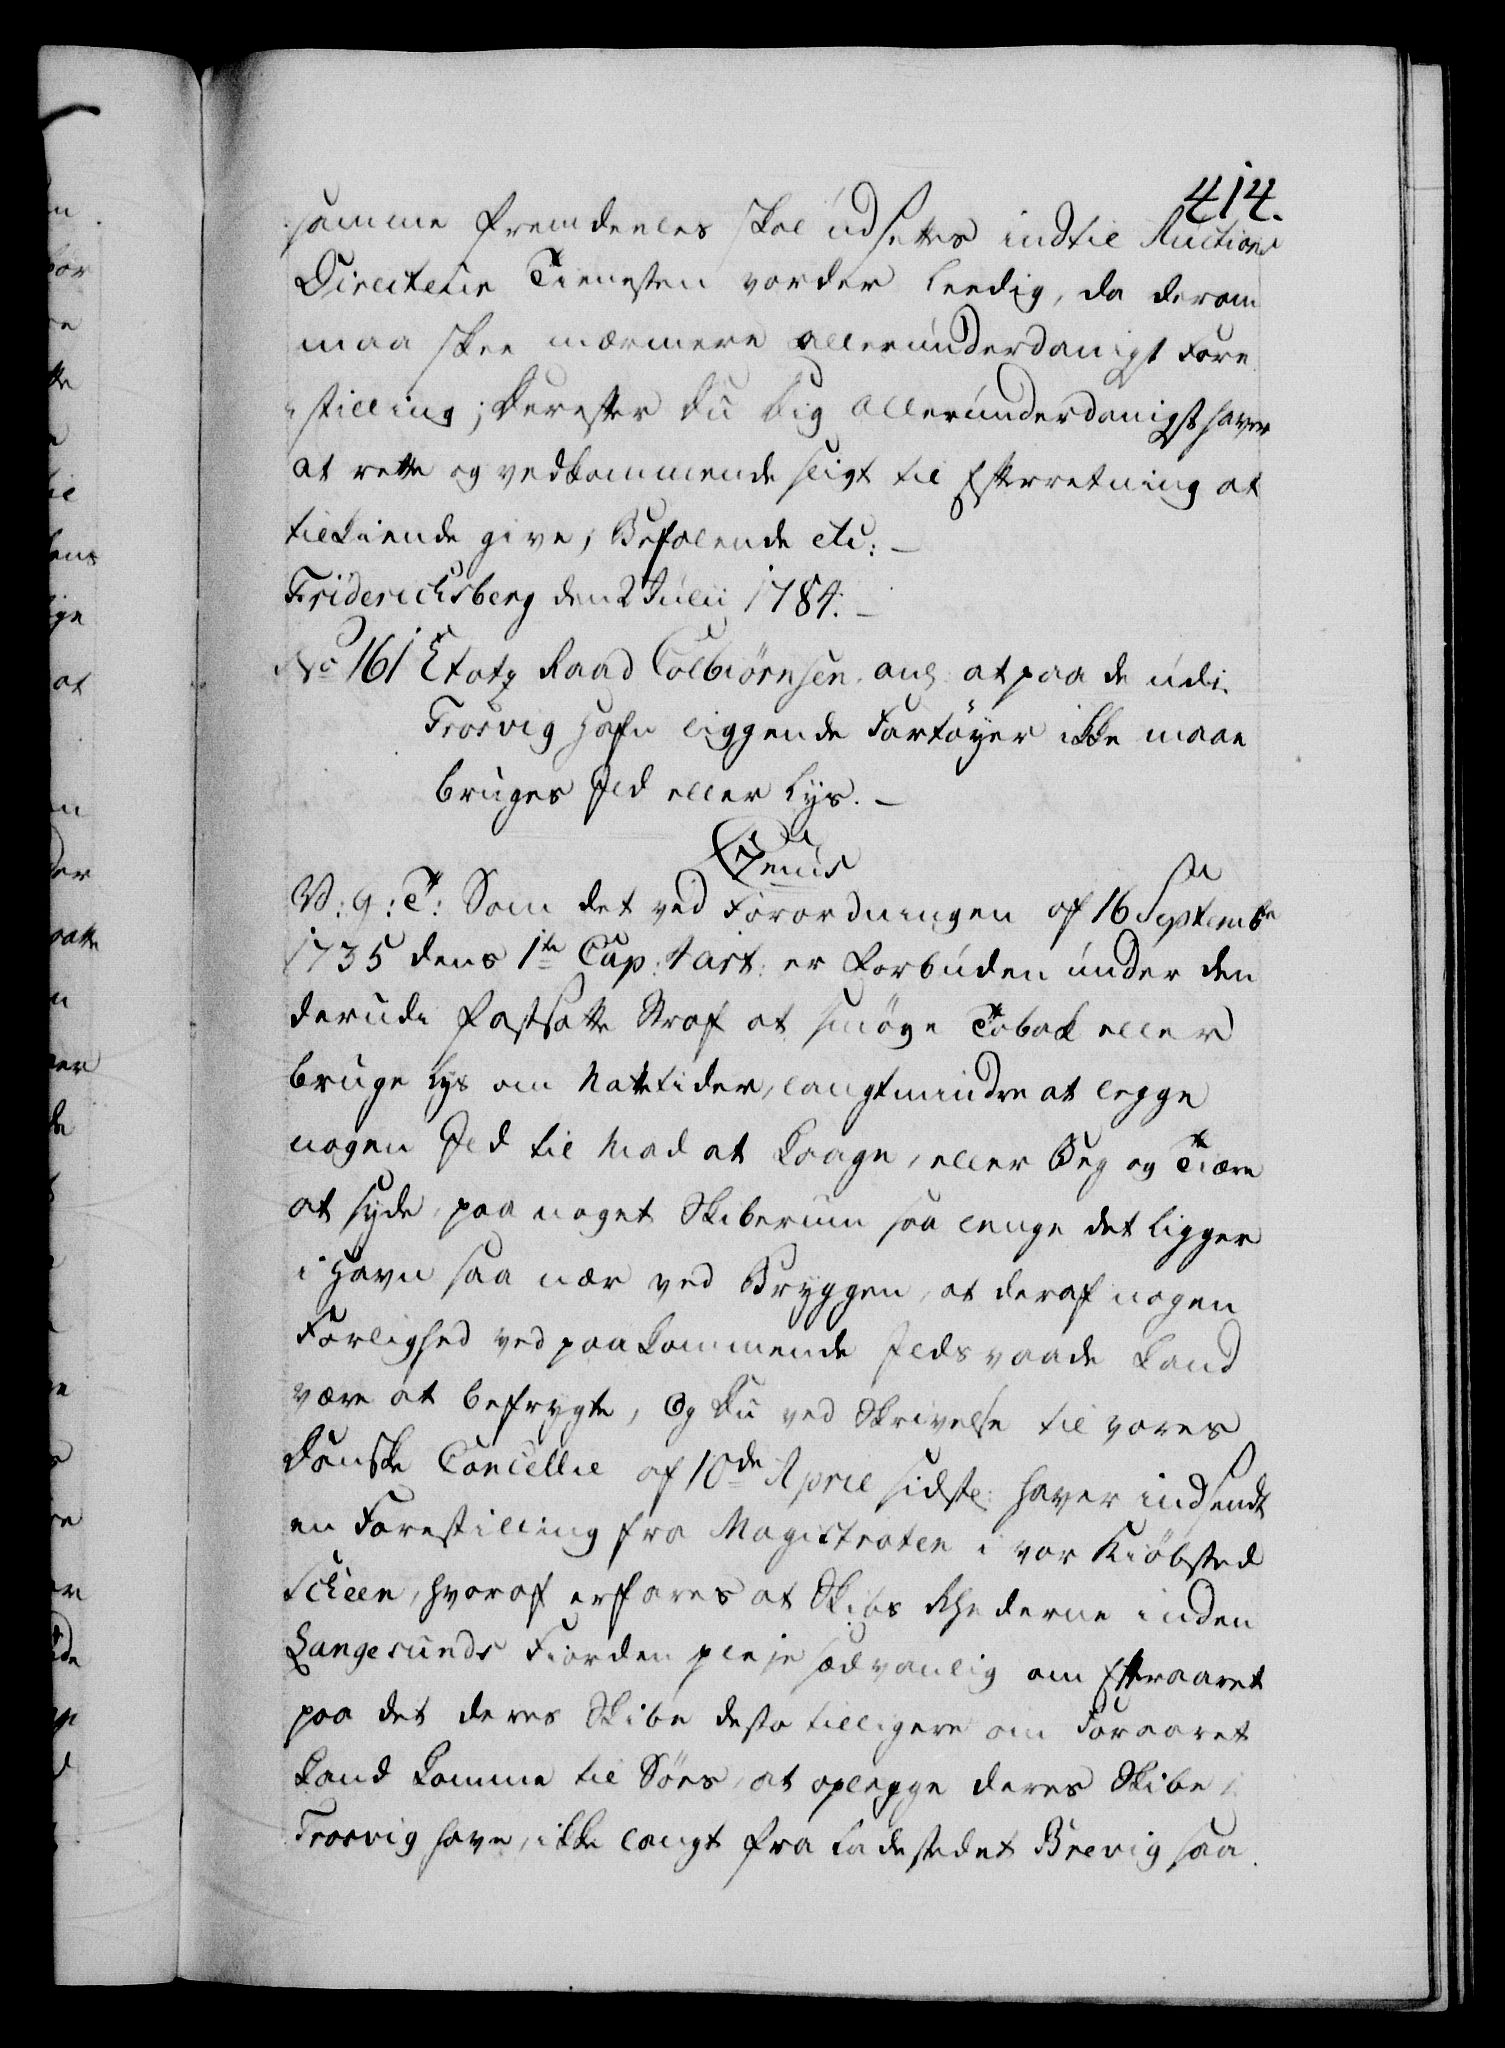 414.
samme fremdeeles skal udsættes indtil Auctions
Directeur Tienesten vorder leedig, da derom
maa skee nærmere allerunderdanigst Fore
stilling; Derefter Du Dig allerunderdanigst haver
at rette og vedkommende sligt til Efterretning at
tilkiende give, Befalende etc: —
Friderichsberg den 2 Julii 1784. —
No 161 Etatz Raad Colbiörnsen ang: at paa de udi
Trosvig Hafn liggende Fartöyer ikke maae
bruges Ild eller Lys. —
Genus
V: g: T: Som det ved Forordningen af 16 Septembr
1735 dens 1te Cap: 4 art: er forbuden under den
derudi fastsatte Straf at smöge Tobak eller
bruge Lys om Natte tider, langt mindre at legge
nogen Ild til Mad at kaage, eller Beg og Tiære
at syde, paa noget Skiberum saa længe det ligger
i Havn saa nær ved Bryggen, at deraf nogen
Farlighed ved paakommende Ildsvaade kand
være at befrygte, Og Du ved Skrivelse til vores
Danske Cancellie af 10de April sidstl: haver indsendt
en Forestilling fra Magistraten i vor Kiöbsted
Scheen, hvoraf erfares at Skibs Rhederne inden
Langesunds Fiorden pleje sædvanlig om Efteraaret
paa det deres Skibe desto tilligere om Foraaret
kand komme til Söes, at oplegge deres Skibe i
Trosvig havn, ikke langt fra Ladestedet Brevig saa